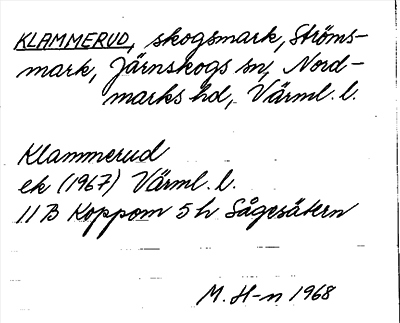 KLAMMERUD, skogsmark, Ströms-
mark, Järnskogs sn, Nord-
marks hd, Värml. l.
Klammerud
ek (1967) Värml. l.
11 B Koppom 5 h Sågesätern
M. H-n 1968